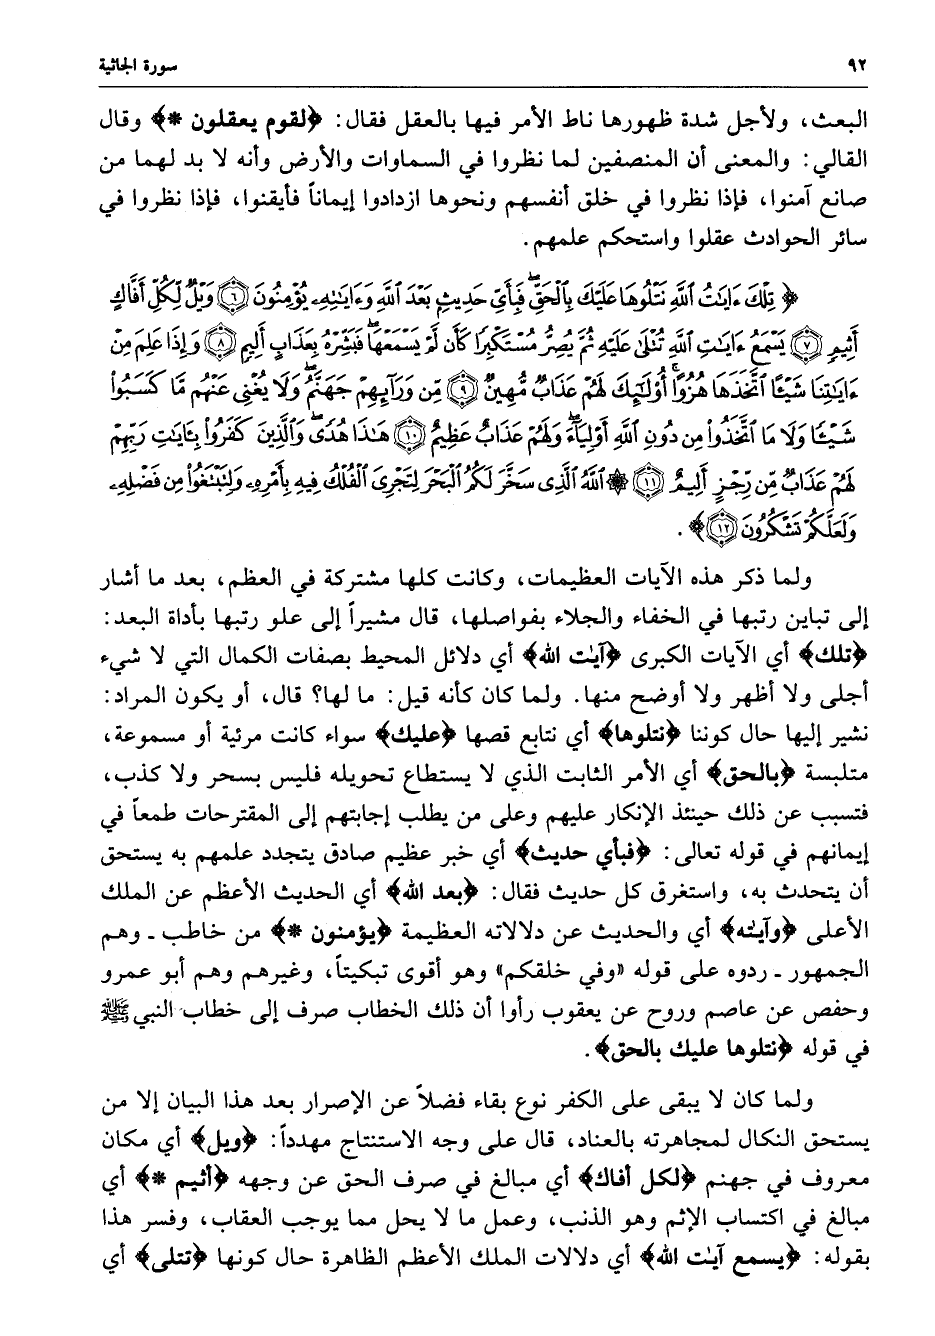 ٩٢ سورة الجاثية
البعث، ولأجل شدة ظهورها ناط الأمر فيها بالعقل فقال: ﴿لقوم يعقلون *﴾ وقال
القالي: والمعنى أن المنصفين لما نظروا في السماوات والأرض وأنه لا بد لهما من
صانع آمنوا، فإذا نظروا في خلق أنفسهم ونحوها ازدادوا إيماناً فأيقنوا، فإذا نظروا في
سائر الحوادث عقلوا واستحكم علمهم.
﴿ تِلْكَ ءَايَٰتُ ٱللَّهِ نَتْلُوهَا عَلَيْكَ بِٱلْحَقِّ ۖ فَبِأَىِّ حَدِيثٍۭ بَعْدَ ٱللَّهِ وَءَايَٰتِهِۦ يُؤْمِنُونَ ٦ وَيْلٌ لِّكُلِّ أَفَّاكٍ
أَثِيمٍ ٧ يَسْمَعُ ءَايَٰتِ ٱللَّهِ تُتْلَىٰ عَلَيْهِ ثُمَّ يُصِرُّ مُسْتَكْبِرًا كَأَن لَّمْ يَسْمَعْهَا ۖ فَبَشِّرْهُ بِعَذَابٍ أَلِيمٍ ٨ وَإِذَا عَلِمَ مِنْ
ءَايَٰتِنَا شَيْـًٔا ٱتَّخَذَهَا هُزُوًا ۚ أُو۟لَٰٓئِكَ لَهُمْ عَذَابٌ مُّهِينٌ ٩ مِّن وَرَآئِهِمْ جَهَنَّمُ ۖ وَلَا يُغْنِى عَنْهُم مَّا كَسَبُوا۟
شَيْـًٔا وَلَا مَا ٱتَّخَذُوا۟ مِن دُونِ ٱللَّهِ أَوْلِيَآءَ ۖ وَلَهُمْ عَذَابٌ عَظِيمٌ ١٠ هَٰذَا هُدًى ۖ وَٱلَّذِينَ كَفَرُوا۟ بِـَٔايَٰتِ رَبِّهِمْ
لَهُمْ عَذَابٌ مِّن رِّجْزٍ أَلِيمٌ ١١ ۞ ٱللَّهُ ٱلَّذِى سَخَّرَ لَكُمُ ٱلْبَحْرَ لِتَجْرِىَ ٱلْفُلْكُ فِيهِ بِأَمْرِهِۦ وَلِتَبْتَغُوا۟ مِن فَضْلِهِۦ
وَلَعَلَّكُمْ تَشْكُرُونَ ١٢﴾.
ولما ذكر هذه الآيات العظيمات، وكانت كلها مشتركة في العظم، بعد ما أشار
إلى تباين رتبها في الخفاء والجلاء بفواصلها، قال مشيراً إلى علو رتبها بأداة البعد:
﴿تلك﴾ أي الآيات الكبرى ﴿آيٰت الله﴾ أي دلائل المحيط بصفات الكمال التي لا شيء
أجلى ولا أظهر ولا أوضح منها. ولما كان كأنه قيل: ما لها؟ قال، أو يكون المراد:
نشير إليها حال كوننا ﴿نتلوها﴾ أي نتابع قصها ﴿عليك﴾ سواء كانت مرئية أو مسموعة،
متلبسة ﴿بالحق﴾ أي الأمر الثابت الذي لا يستطاع تحويله فليس بسحر ولا كذب،
فتسبب عن ذلك حينئذ الإنكار عليهم وعلى من يطلب إجابتهم إلى المقترحات طمعاً في
إيمانهم في قوله تعالى: ﴿فبأي حديث﴾ أي خبر عظيم صادق يتجدد علمهم به يستحق
أن يتحدث به، واستغرق كل حديث فقال: ﴿بعد الله﴾ أي الحديث الأعظم عن الملك
الأعلى ﴿وآيٰته﴾ أي والحديث عن دلالاته العظيمة ﴿يؤمنون *﴾ من خاطب ـ وهم
الجمهور ـ ردوه على قوله «وفي خلقكم» وهو أقوى تبكيتاً، وغيرهم وهم أبو عمرو
وحفص عن عاصم وروح عن يعقوب رأوا أن ذلك الخطاب صرف إلى خطاب النبي ﷺ
في قوله ﴿نتلوها عليك بالحق﴾.
ولما كان لا يبقى على الكفر نوع بقاء فضلاً عن الإصرار بعد هذا البيان إلا من
يستحق النكال لمجاهرته بالعناد، قال على وجه الاستنتاج مهدداً: ﴿ويل﴾ أي مكان
معروف في جهنم ﴿لكل أفاك﴾ أي مبالغ في صرف الحق عن وجهه ﴿أثيم *﴾ أي
مبالغ في اكتساب الإثم وهو الذنب، وعمل ما لا يحل مما يوجب العقاب، وفسر هذا
بقوله: ﴿يسمع آيٰت الله﴾ أي دلالات الملك الأعظم الظاهرة حال كونها ﴿تتلى﴾ أي